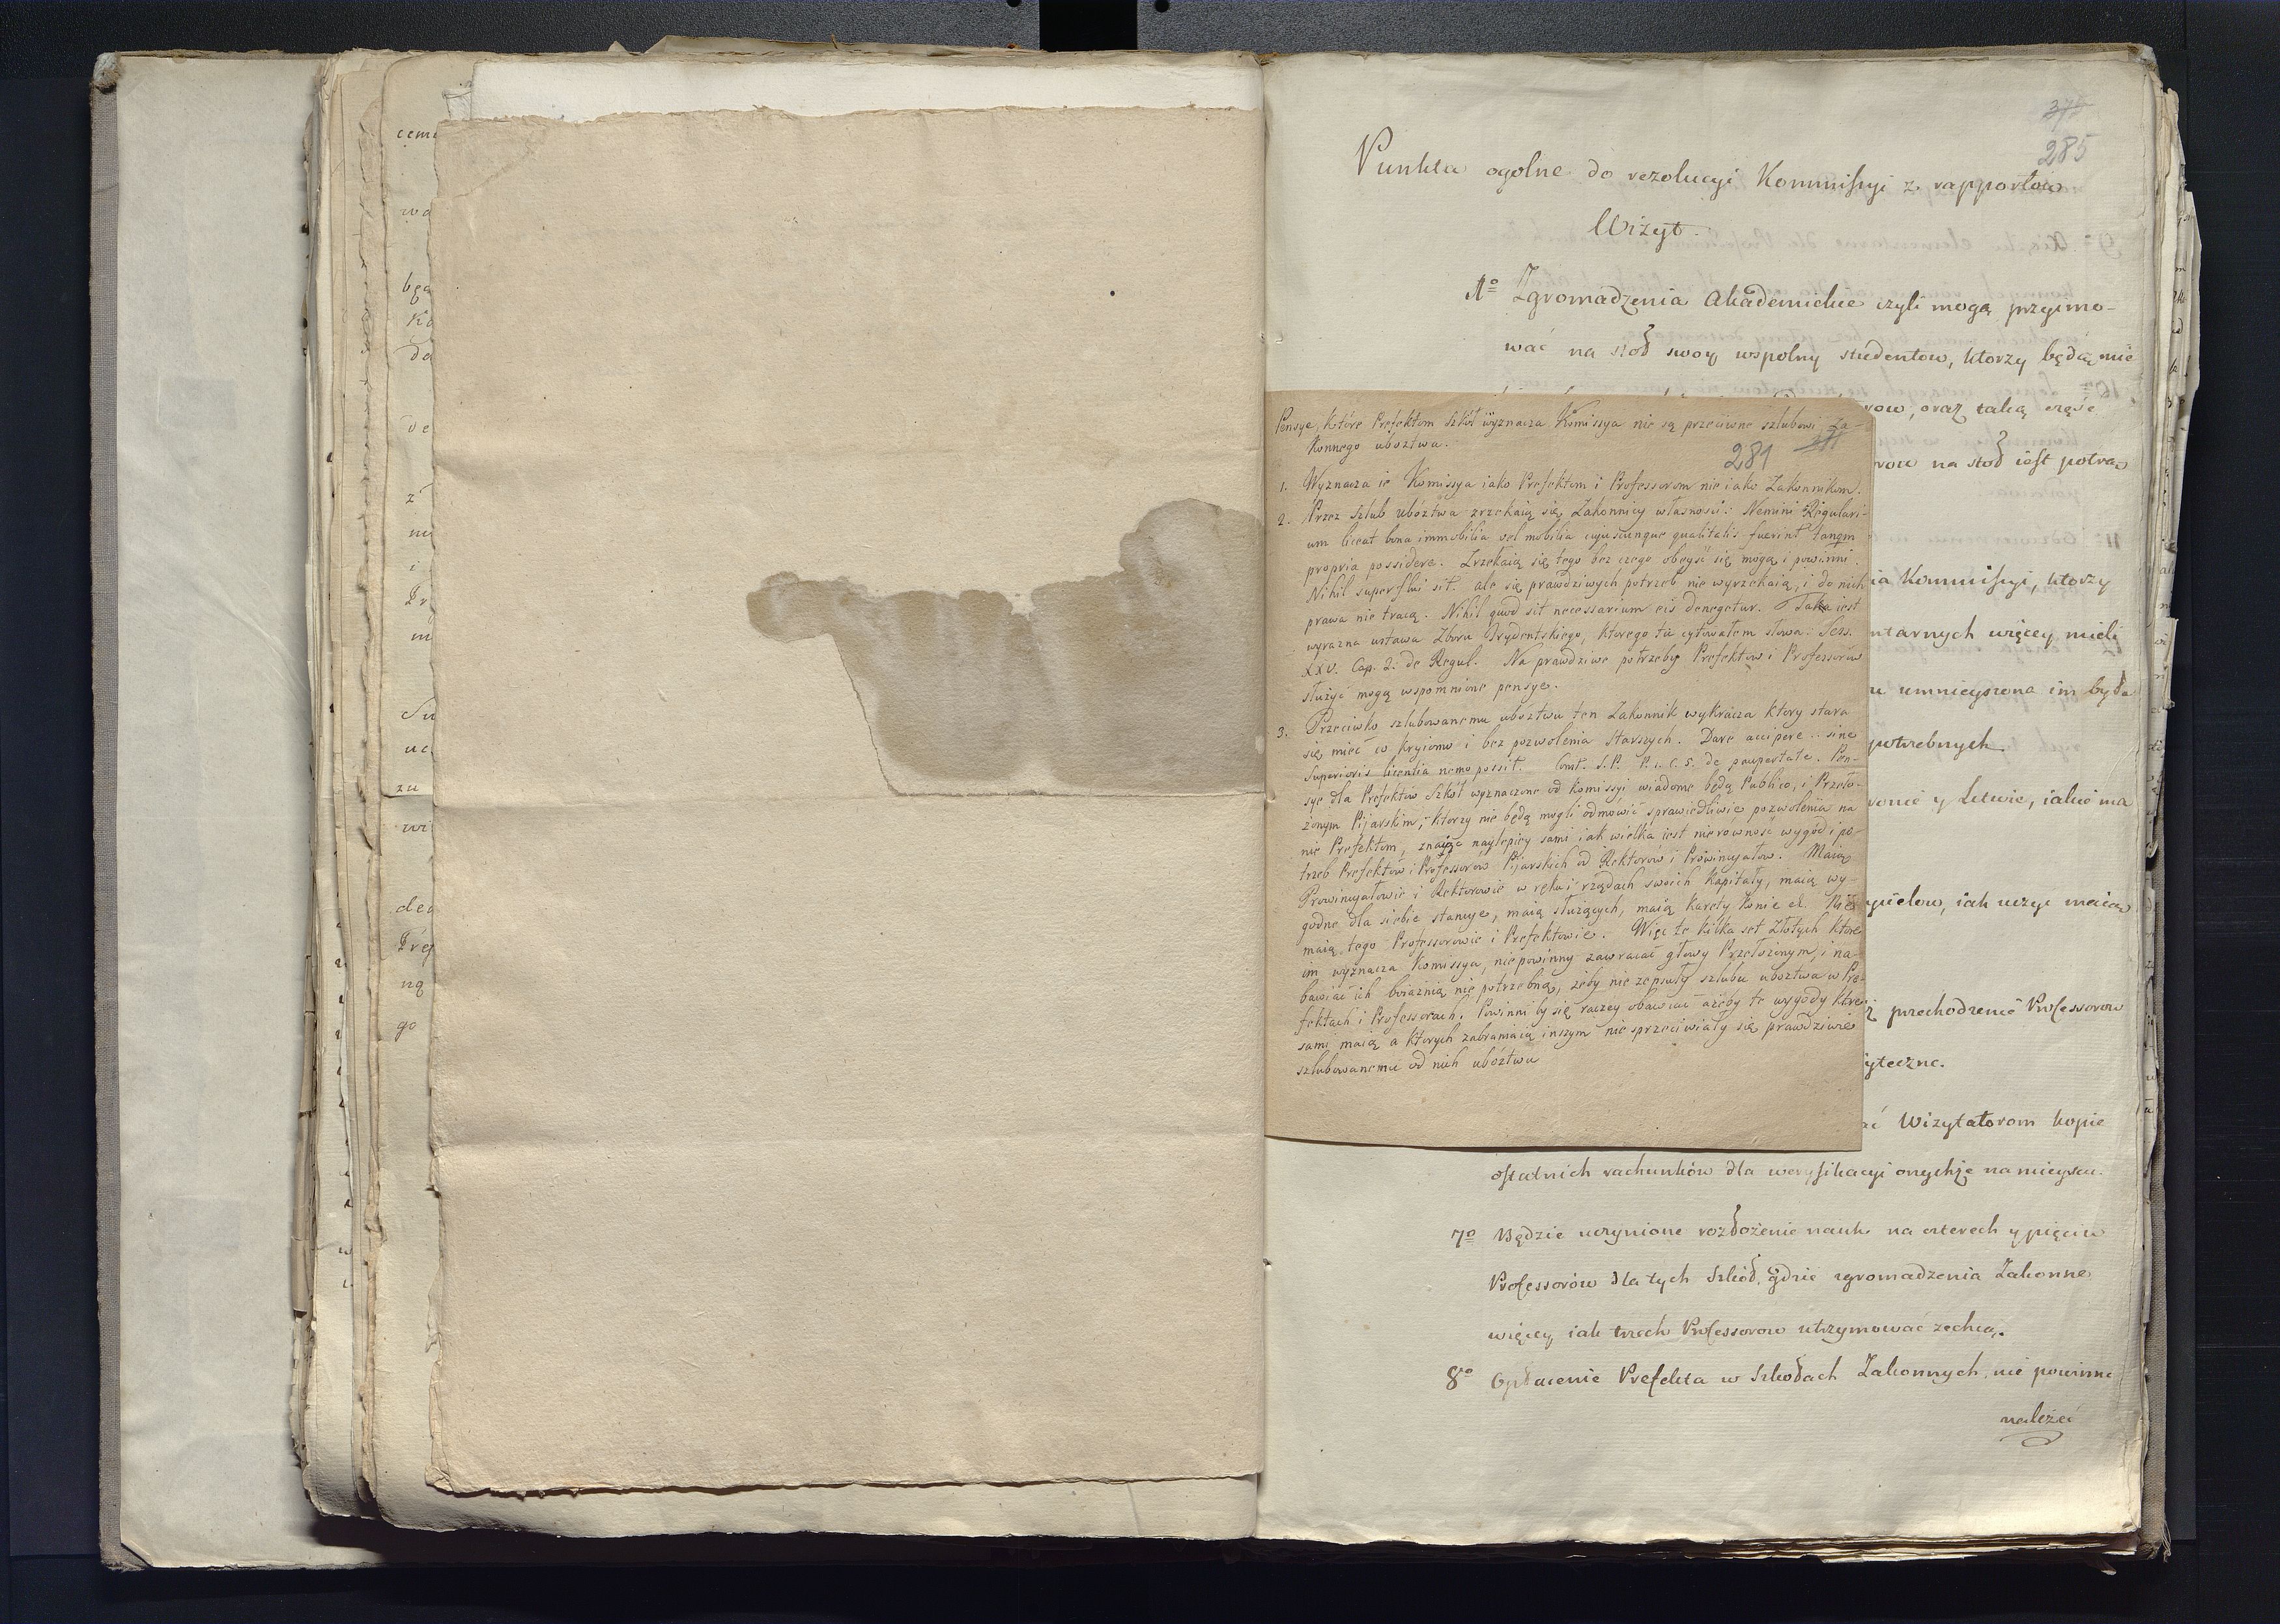 375
285
Punkta ogolne do rezolucyi Kommissyi z rapportow
Wizyt.
1º Zgromadzenia Akademickie czyli mogą przyimo-
wać na stoł swoy wspolny studentow, ktorzy będą mie
row, oraz taką część
row na stoł iest potra
ia Kommissyi, ktorzy
ntarnych więcey mieli
u umnieyszona im była
potrzebnych.
ronie y Litwie, iakie ma
ycielow, iak uczyc maią
przechodzenie Professorow
yteczne.
ać Wizytatorom kopie
ostatnich rachunków dla weryfikacyi onychże na mieyscu.
7º Będzie uczynione rozłożenie nauk na czterech y pięciu
Professorów dla tych Szkół, gdzie zgromadzenia Zakonne
więcey iak trzech Professorow utrzymować zechcą.
8º Opłacenie Prefekta w Szkołach Zakonnych, nie powinno
należeć
Pensye, które Prefektom Szkół wyznacza Komissya nie są przeciwne szlubowi Za-
konnego ubóztwa.
281
1. Wyznacza ie Komissya iako Prefektom i Professorom nie iako Zakonnikom.
2. Przez szlub ubóztwa zrzekaią się Zakonnicy własności: Nemini Regulari-
um liceat bona immobilia vel mobilia cujuscunque qualitatis fuerint tanqm
propria possidere. Zrzekaią się tego bez czego obeyść się mogą i powinni.
Nihil superflui sit. ale się prawdziwych potrzeb nie wyrzekaią, i do nich
prawa nie tracą. Nihil quod sit necessarium eis denegetur. Taka iest
wyrazna ustawa Zboru Trydentskiego, ktorego tu cytowałem słowa. Sess.
XXV. Cap. 2. de Regul. Na prawdziwe potrzeby Prefektow i Professorow
służyć mogą wspomnione pensye.
3. Przeciwko szlubowanemu ubóztwu ten Zakonnik wykracza ktory stara
się mieć co kryiomo i bez pozwolenia Starszych. Dare accipere .. sine
Superioris licentia nemo possit. Const. S.P. P. 1. C. 5. de paupertate. Pen-
sye dla Prefektów Szkół wyznaczone od Komissyi wiadome będą Publico, i Przeło-
żonym Pijarskim, ktorzy nie będą mogli odmówić sprawiedliwie pozwolenia na
nie Prefektom, znaiąc naylepiey sami iak wielka iest nierówność wygód i po-
trzeb Prefektów i Professorów Pijarskich od Rektorów i Prowincyałow. Maią
Prowincyałowie i Rektorowie w ręku i rządach swoich Kapitały, maią wy-
godne dla siebie stancye, maią służących, maią karety konie etc. Nie
maią tego Professorowie i Prefektowie. Więc te kilka set Złotych które
im wyznacza Komissya, nie powinny zawracać głowy Przełożonym, i na-
bawiać ich boiaźnią nie potrzebną, żeby nie zepsuły szlubu ubóztwa w Pre-
fektach i Professorach. Powinni by się raczey obawiać ażeby te wygody które
sami maią a ktorych zabraniaią inszym nie sprzeciwiały się prawdziwie
szlubowanemu od nich ubóztwu